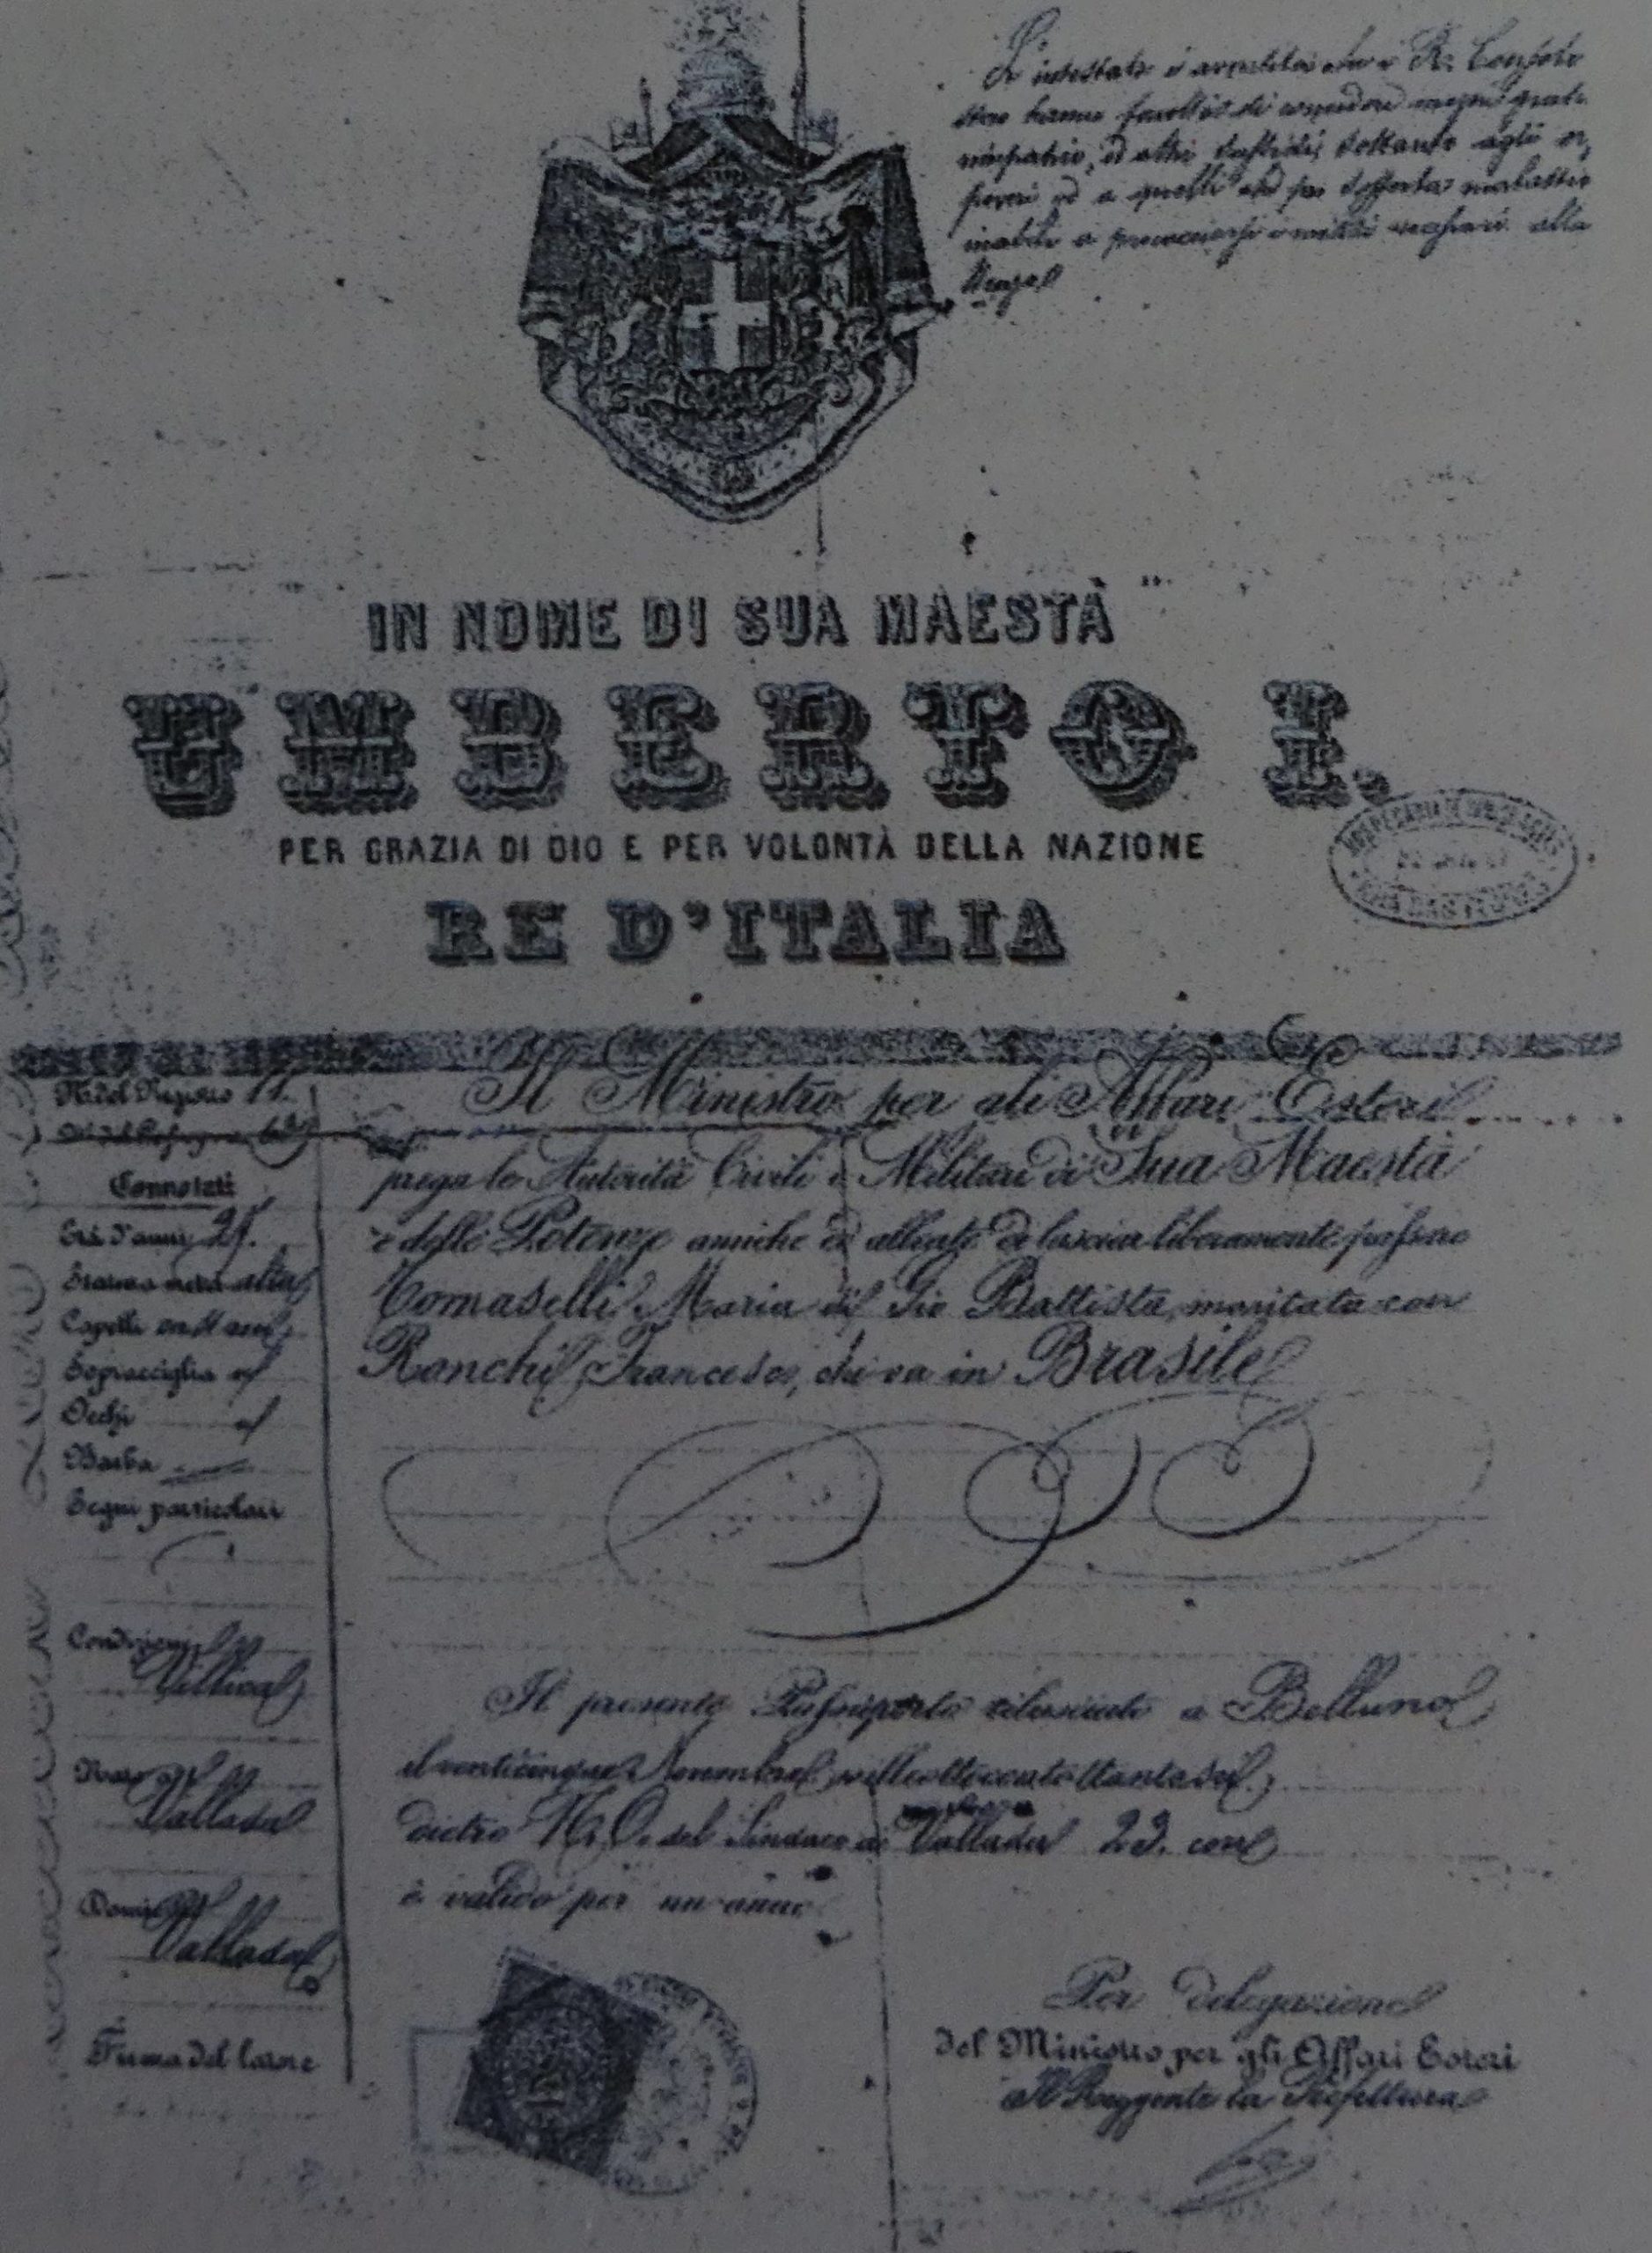 L'intestato è avvertito che i R. Consoli
hanno facoltà di concedere mezzi gratuiti
rimpatrio, ed altri sussidi, soltanto agli
poveri ed a quelli che per sofferta malattia
inabili a procacciarsi i mezzi necessari alla
IN NOME DI SUA MAESTÀ
UMBERTO I.
PER GRAZIA DI DIO E PER VOLONTÀ DELLA NAZIONE
RE D'ITALIA
N. del Registro 11.
Connotati
Età d'anni
Statura alta
Capelli castani
Sopracciglia id
Occhi id
Barba
Segni particolari
Condizione
Villica
Nato a
Vallada
Domic.
Vallada
Firma del latore
Il Ministro per gli Affari Esteri
prega le Autorità Civili e Militari di Sua Maestà
e delle Potenze amiche ed alleate di lasciar liberamente passare
Tomaselli Maria di Gio Battista, maritata con
Ronchi Francesco, che va in Brasile
Il presente Passaporto rilasciato a Belluno
il venticinque Novembre milleottocentottantasei
dietro N. O. del Sindaco di Vallada 23. corr
è valido per un anno
Per delegazione
del Ministro per gli Affari Esteri
Il Reggente la Prefettura